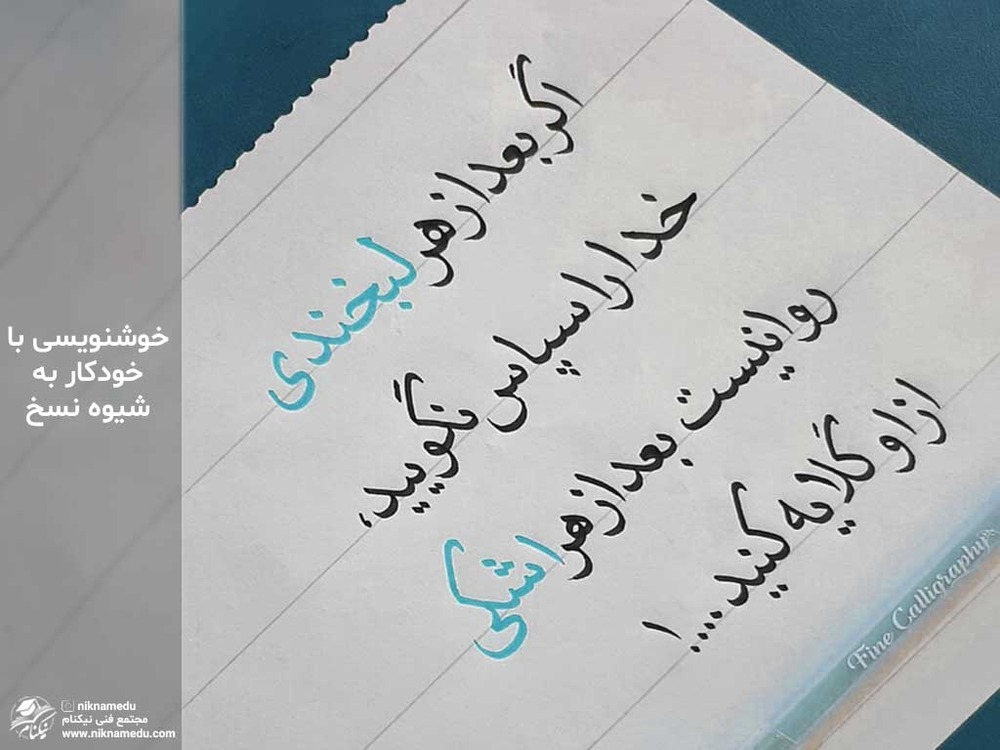 اگر بعد از هر لبخندی
خدا را سپاس نگویید،
روا نیست بعد از هر اشکی
از او گلایه کنید....!
Fine Calligraphy
خوشنویسی با
خودکار به
شیوه نسخ
نیکنام
niknamedu
مجتمع فنی نیکنام
www.niknamedu.com